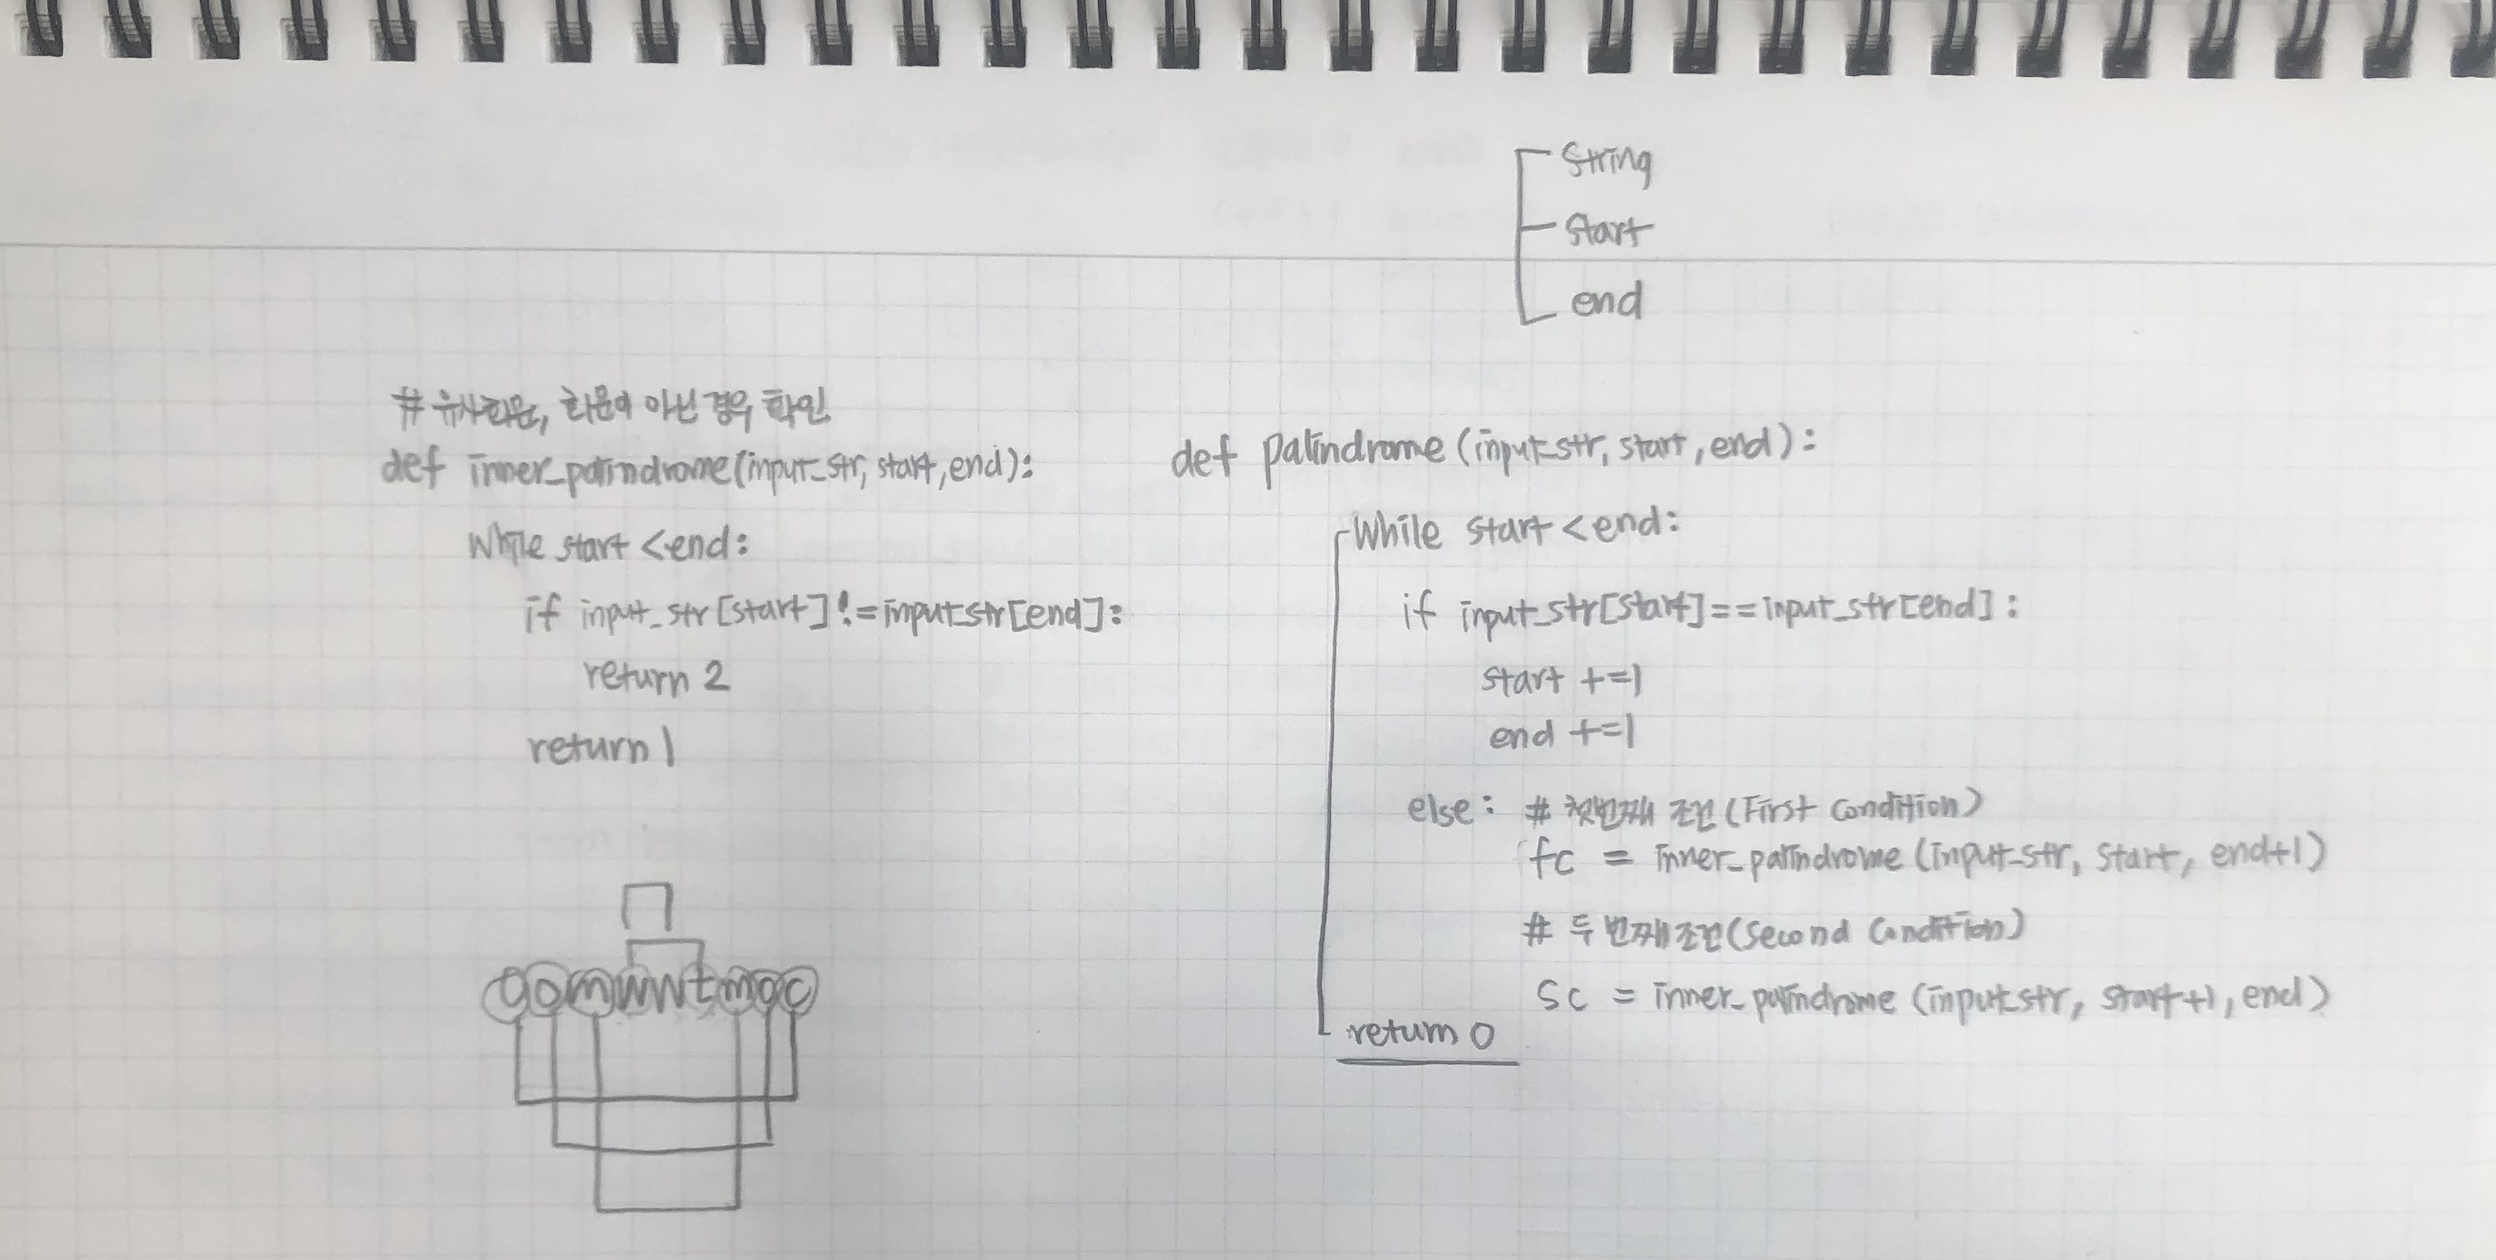 string
start
end
# 유사회문, 회문이 아닌 경우 확인
def inner_palindrome(input_str, start, end):
while start < end:
if input_str[start] != input_str[end]:
return 2
return 1
def palindrome (input_str, start, end):
While start < end:
if input_str[start] == input_str[end]:
start +=1
end +=1
else: # 첫번째 조건 (First Condition)
fc = inner_palindrome (input_str, start, end+1)
# 두 번째 조건 (Second Condition)
sc = inner_palindrome (input_str, start+1, end)
return 0